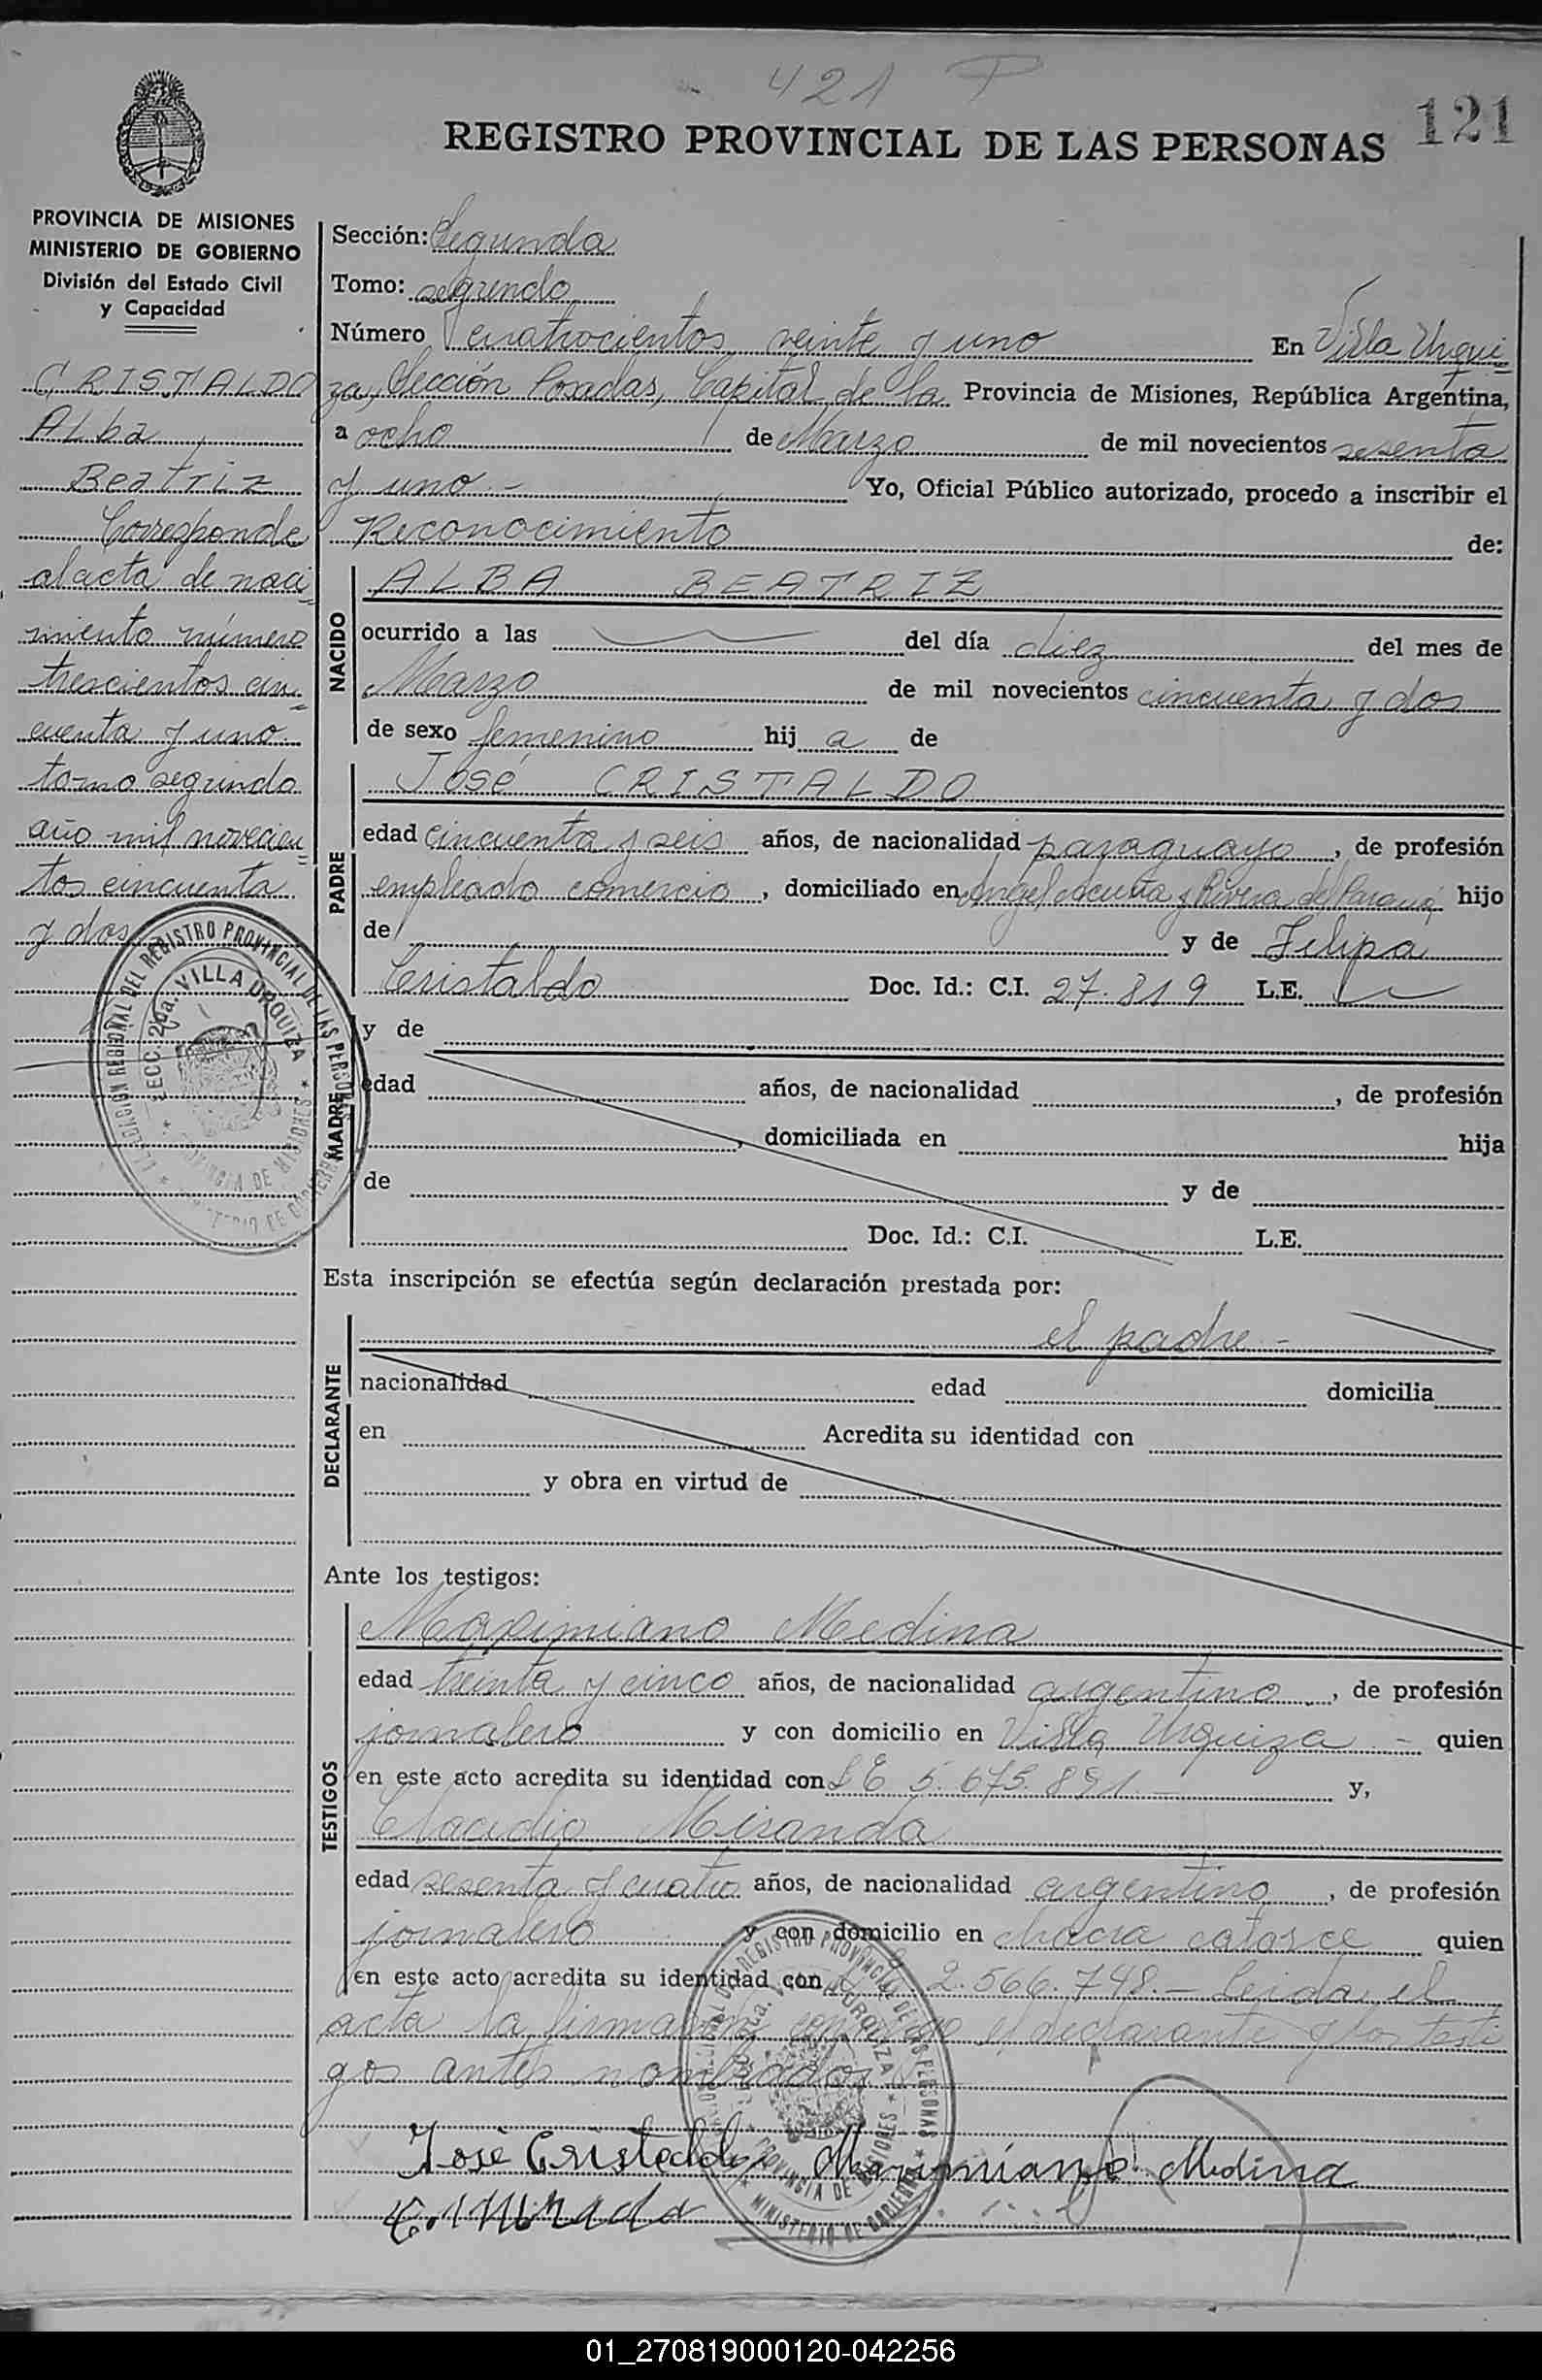 421 P
121
REGISTRO PROVINCIAL DE LAS PERSONAS
PROVINCIA DE MISIONES
MINISTERIO DE GOBIERNO
División del Estado Civil
y Capacidad
CRISTALDO
ALba
Beatriz
Corresponde
al acta de naci
miento número
trescientos cin
cuenta y uno
tomo segundo
año mil novecien
tos cincuenta
y dos
DELEGACION REGIONAL DEL REGISTRO PROVINCIAL DE LAS PERSONAS
SECC 2da. VILLA URQUIZA
PROVINCIA DE MISIONES
MINISTERIO DE GOBIERNO
Sección: Segunda
Tomo: segundo
Número cuatrocientos veinte y uno En Villa Urqui
za, Sección Posadas, Capital de la Provincia de Misiones, República Argentina,
a ocho de Marzo de mil novecientos sesenta
y uno.- Yo, Oficial Público autorizado, procedo a inscribir el
Reconocimiento de:
NACIDO
ALBA BEATRIZ
ocurrido a las del día diez del mes de
Marzo de mil novecientos cincuenta y dos
de sexo femenino hij a de
PADRE
José CRISTALDO
edad cincuenta y seis años, de nacionalidad paraguayo, de profesión
empleado comercio, domiciliado en Angel Acuña y Rivera del Paraná hijo
de y de Felipa
Cristaldo Doc. Id.: C.I. 27.819 L.E.
MADRE
y de
edad años, de nacionalidad , de profesión
, domiciliada en hija
de y de
Doc. Id.: C.I. L.E.
Esta inscripción se efectúa según declaración prestada por:
DECLARANTE
el padre -
nacionalidad edad domicilia
en Acredita su identidad con
y obra en virtud de
Ante los testigos:
TESTIGOS
Maximiano Medina
edad treinta y cinco años, de nacionalidad argentino, de profesión
jornalero y con domicilio en Villa Urquiza - quien
en este acto acredita su identidad con L E 5.675.891 y,
Claudio Miranda
edad sesenta y cuatro años, de nacionalidad argentino, de profesión
jornalero y con domicilio en chacra catorce quien
en este acto acredita su identidad con 2.566.748.- Leida el
acta la firman conmigo el declarante y los testi
gos antes nombrados
José Cristaldo Maximiano Medina
C. Miranda
01_270819000120-042256